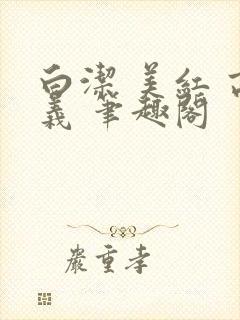 白潔 美紅 高
義 筆趣閣
嚴重孝